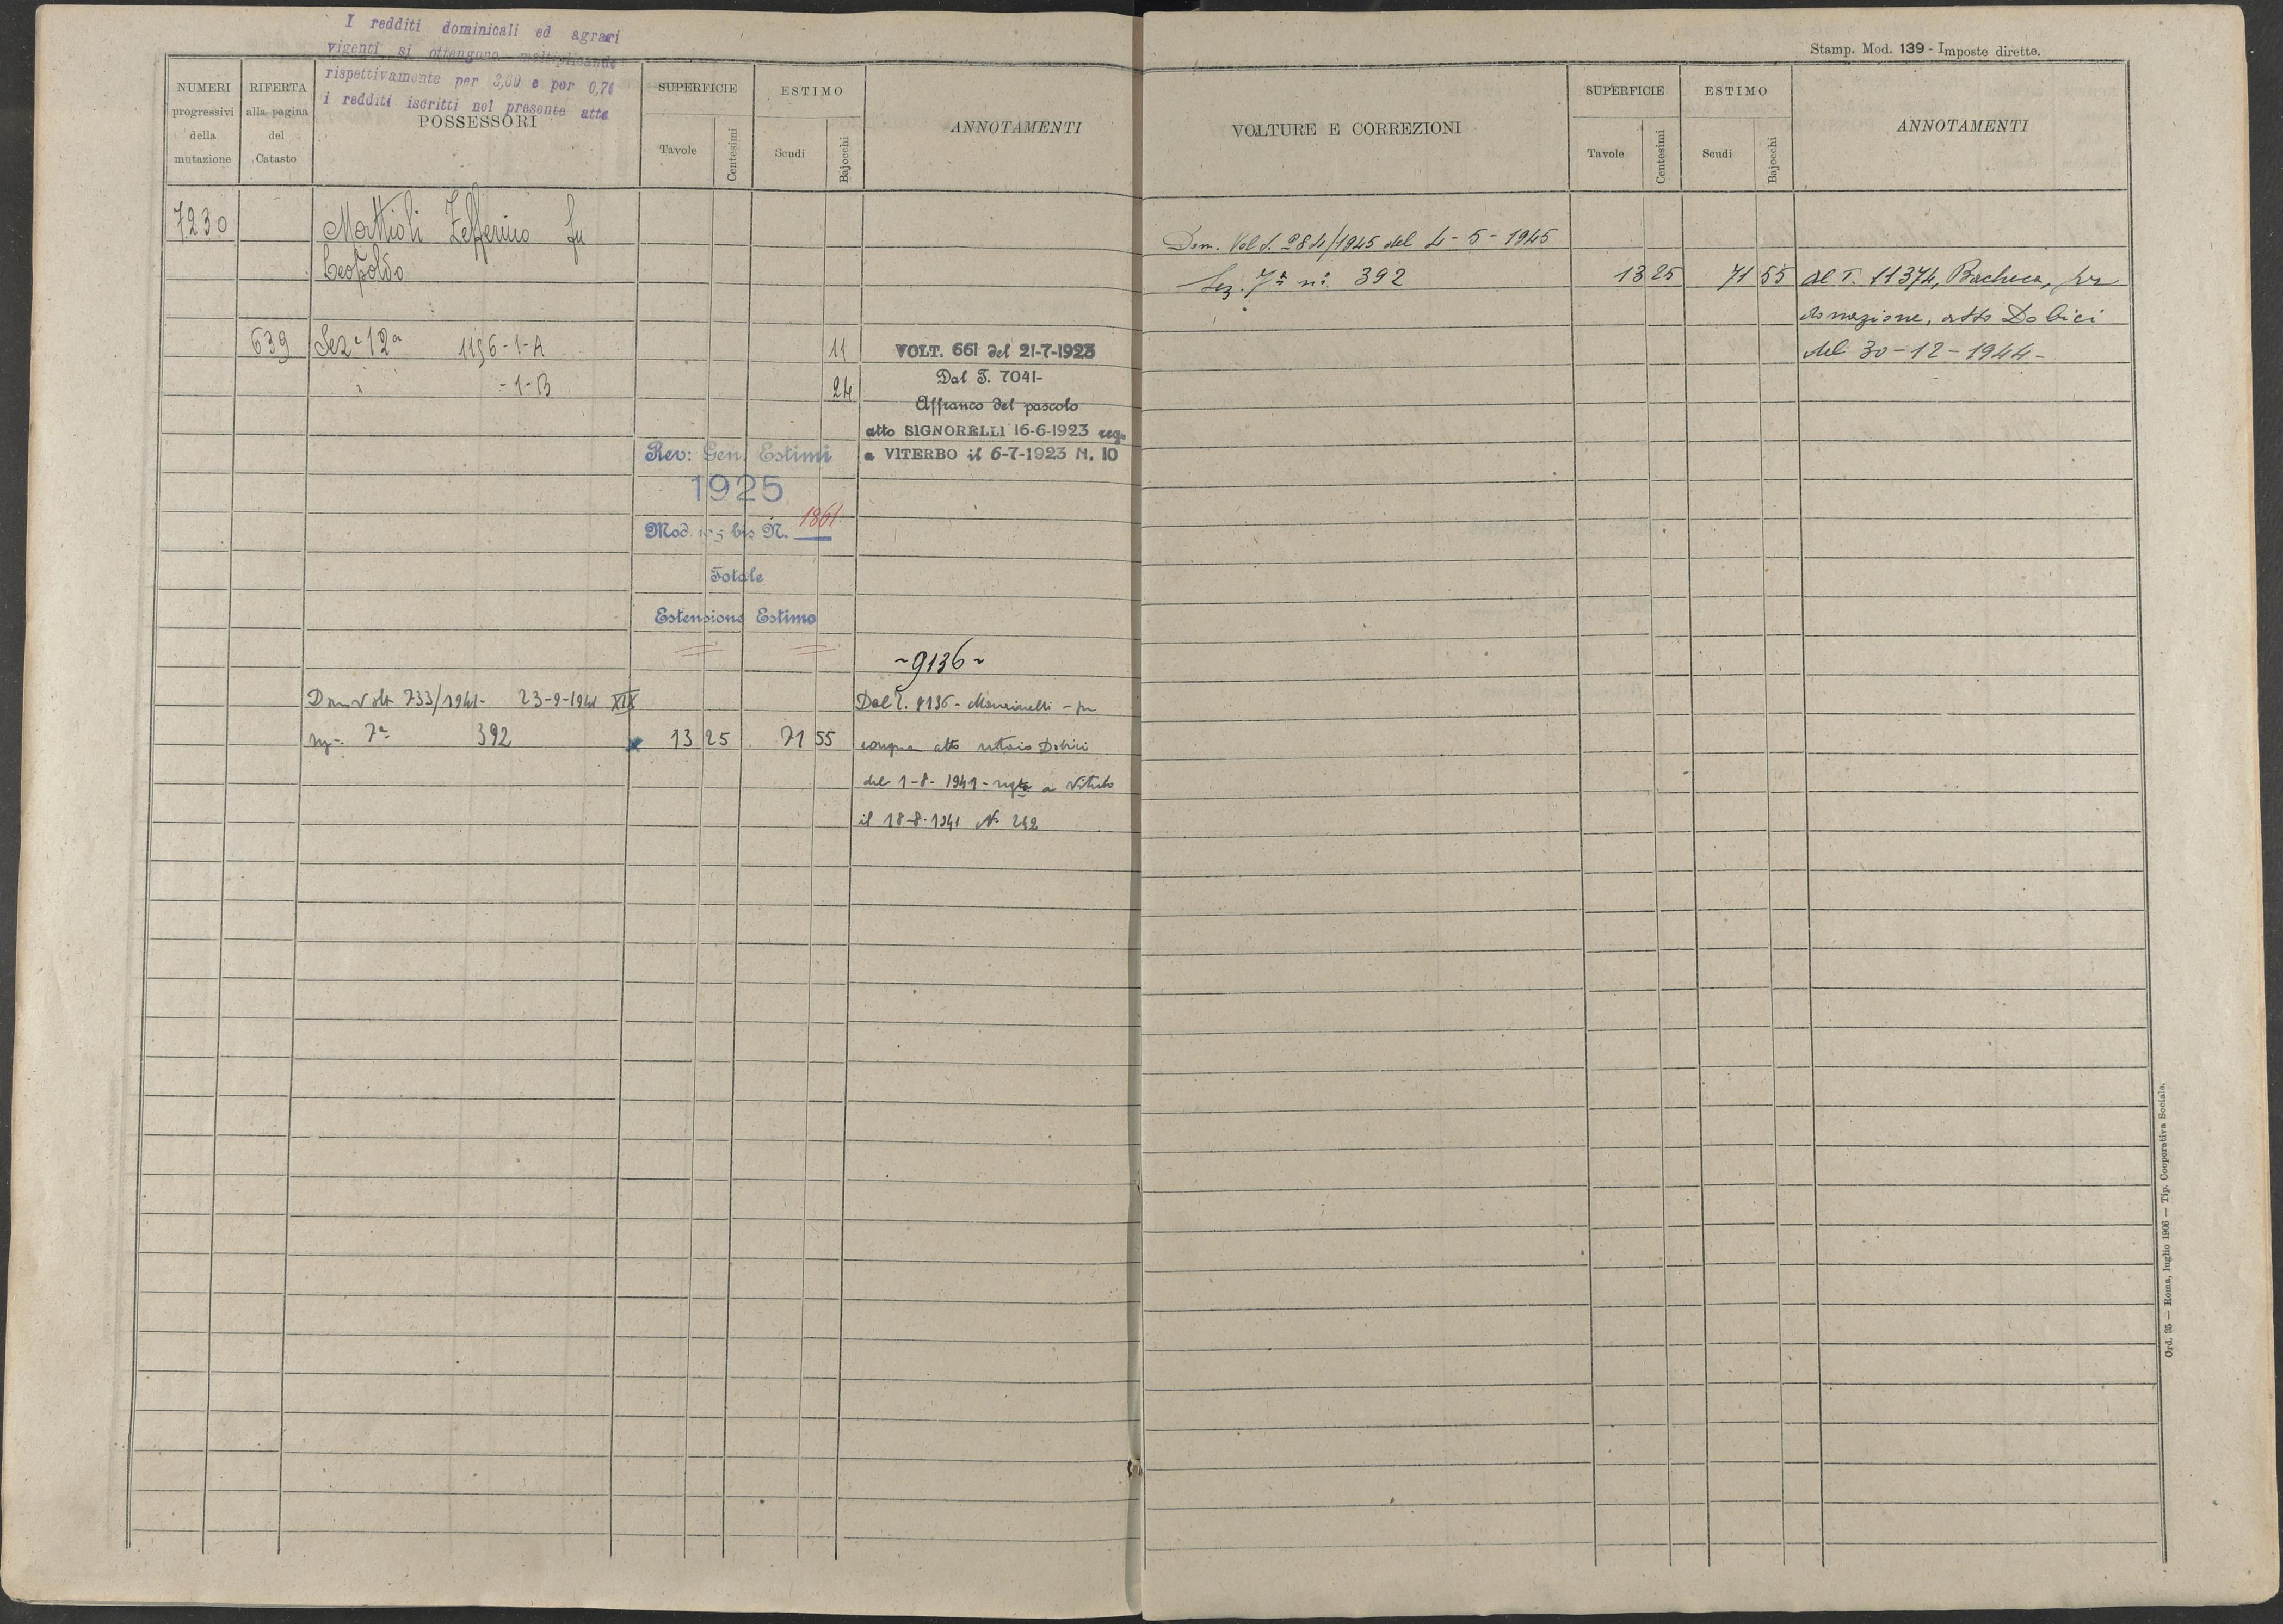 I redditi dominicali ed agrari
vigenti si ottengono moltiplicando
rispettivamente per 3,60 e per 0,70
i redditi iscritti nel presente atto
NUMERI
progressivi
della
mutazione
RIFERTA
alla pagina
del
Catasto
POSSESSORI
SUPERFICIE
Tavole
Centesimi
ESTIMO
Scudi
Bajocchi
ANNOTAMENTI
7230
Mattioli Zefferino fu
Leopoldo
639 Sez. 12a 1196-1-A 11
VOLT. 661 del 21-7-1923
" -1-B 24
Dal T. 7041-
Affranco del pascolo
atto SIGNORELLI 16-6-1923 reg.
a VITERBO il 6-7-1923 N. 10
Rev: Gen. Estimi
1925
Mod. 109 bis N. 1861
Totale
Estensione Estimo
~9136~
Dom Volt 733/1941- 23-9-1941 XIX
Dal T. 9136 - Mancinelli - per
7a 392 13 25 71 55
compra atto notaio Dobici
del 1-8-1941 - a Viterbo
il 18-8-1941 N. 242
Stamp. Mod. 139 - Imposte dirette.
VOLTURE E CORREZIONI
SUPERFICIE
Tavole
Centesimi
ESTIMO
Scudi
Bajocchi
ANNOTAMENTI
Dom. Volt. 284/1945 del 4-5-1945
Sez. 7a n. 392 13 25 71 55 al T. 11374, Bacheca, per
donazione, atto Dobici
del 30-12-1944-
Ord. 35 — Roma, luglio 1906 — Tip. Cooperativa Sociale.